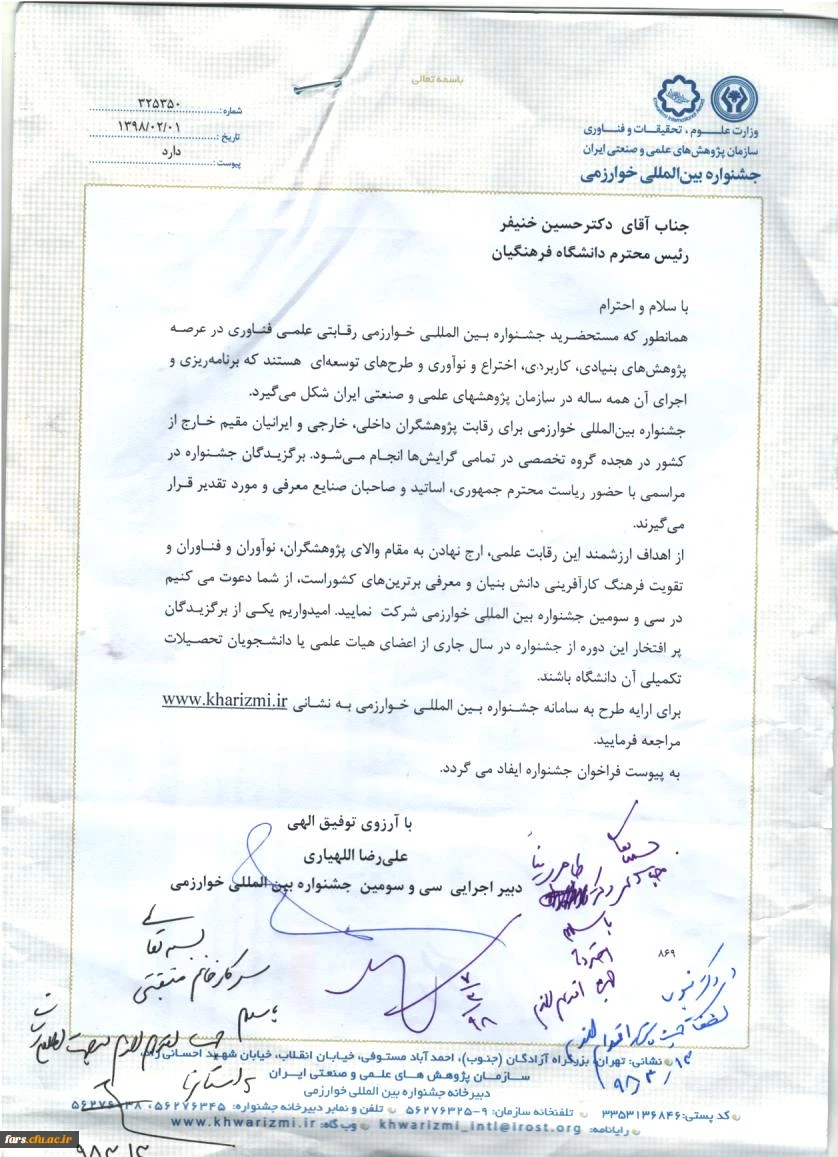 باسمه تعالی
وزارت علوم، تحقیقات و فناوری
سازمان پژوهش‌های علمی و صنعتی ایران
جشنواره بین‌المللی خوارزمی
شماره: ۳۲۵۳۵۰
تاریخ: ۱۳۹۸/۰۲/۰۱
پیوست: دارد
جناب آقای دکترحسین خنیفر
رئیس محترم دانشگاه فرهنگیان
با سلام و احترام
همانطور که مستحضرید جشنواره بین المللی خوارزمی رقابتی علمی فناوری در عرصه
پژوهش‌های بنیادی، کاربردی، اختراع و نوآوری و طرح‌های توسعه‌ای هستند که برنامه‌ریزی و
اجرای آن همه ساله در سازمان پژوهشهای علمی و صنعتی ایران شکل می‌گیرد.
جشنواره بین‌المللی خوارزمی برای رقابت پژوهشگران داخلی، خارجی و ایرانیان مقیم خارج از
کشور در هجده گروه تخصصی در تمامی گرایش‌ها انجام می‌شود. برگزیدگان جشنواره در
مراسمی با حضور ریاست محترم جمهوری، اساتید و صاحبان صنایع معرفی و مورد تقدیر قرار
می‌گیرند.
از اهداف ارزشمند این رقابت علمی، ارج نهادن به مقام والای پژوهشگران، نوآوران و فناوران و
تقویت فرهنگ کارآفرینی دانش بنیان و معرفی برترین‌های کشوراست، از شما دعوت می کنیم
در سی و سومین جشنواره بین المللی خوارزمی شرکت نمایید. امیدواریم یکی از برگزیدگان
پر افتخار این دوره از جشنواره در سال جاری از اعضای هیات علمی یا دانشجویان تحصیلات
تکمیلی آن دانشگاه باشند.
برای ارایه طرح به سامانه جشنواره بین المللی خوارزمی به نشانی www.kharizmi.ir
مراجعه فرمایید.
به پیوست فراخوان جشنواره ایفاد می گردد.
با آرزوی توفیق الهی
علی‌رضا اللهیاری
دبیر اجرایی سی و سومین جشنواره بین المللی خوارزمی
بسمه تعالی
سرکار خانم
با سلام
۹۸/۲/۷
۸۶۹
نشانی: تهران، بزرگراه آزادگان (جنوب)، احمدآباد مستوفی، خیابان انقلاب، خیابان شهید احسانی راد،
سازمان پژوهش های علمی و صنعتی ایران
دبیرخانه جشنواره بین المللی خوارزمی
کد پستی: ۳۳۵۳۱۳۶۸۴۶ تلفنخانه سازمان: ۹-۵۶۲۷۶۳۲۵ تلفن و نمابر دبیرخانه جشنواره: ۵۶۲۷۶۳۴۵،
رایانامه: khwarizmi_intl@irost.org وب گاه: www.khwarizmi.ir
fars.cfu.ac.ir